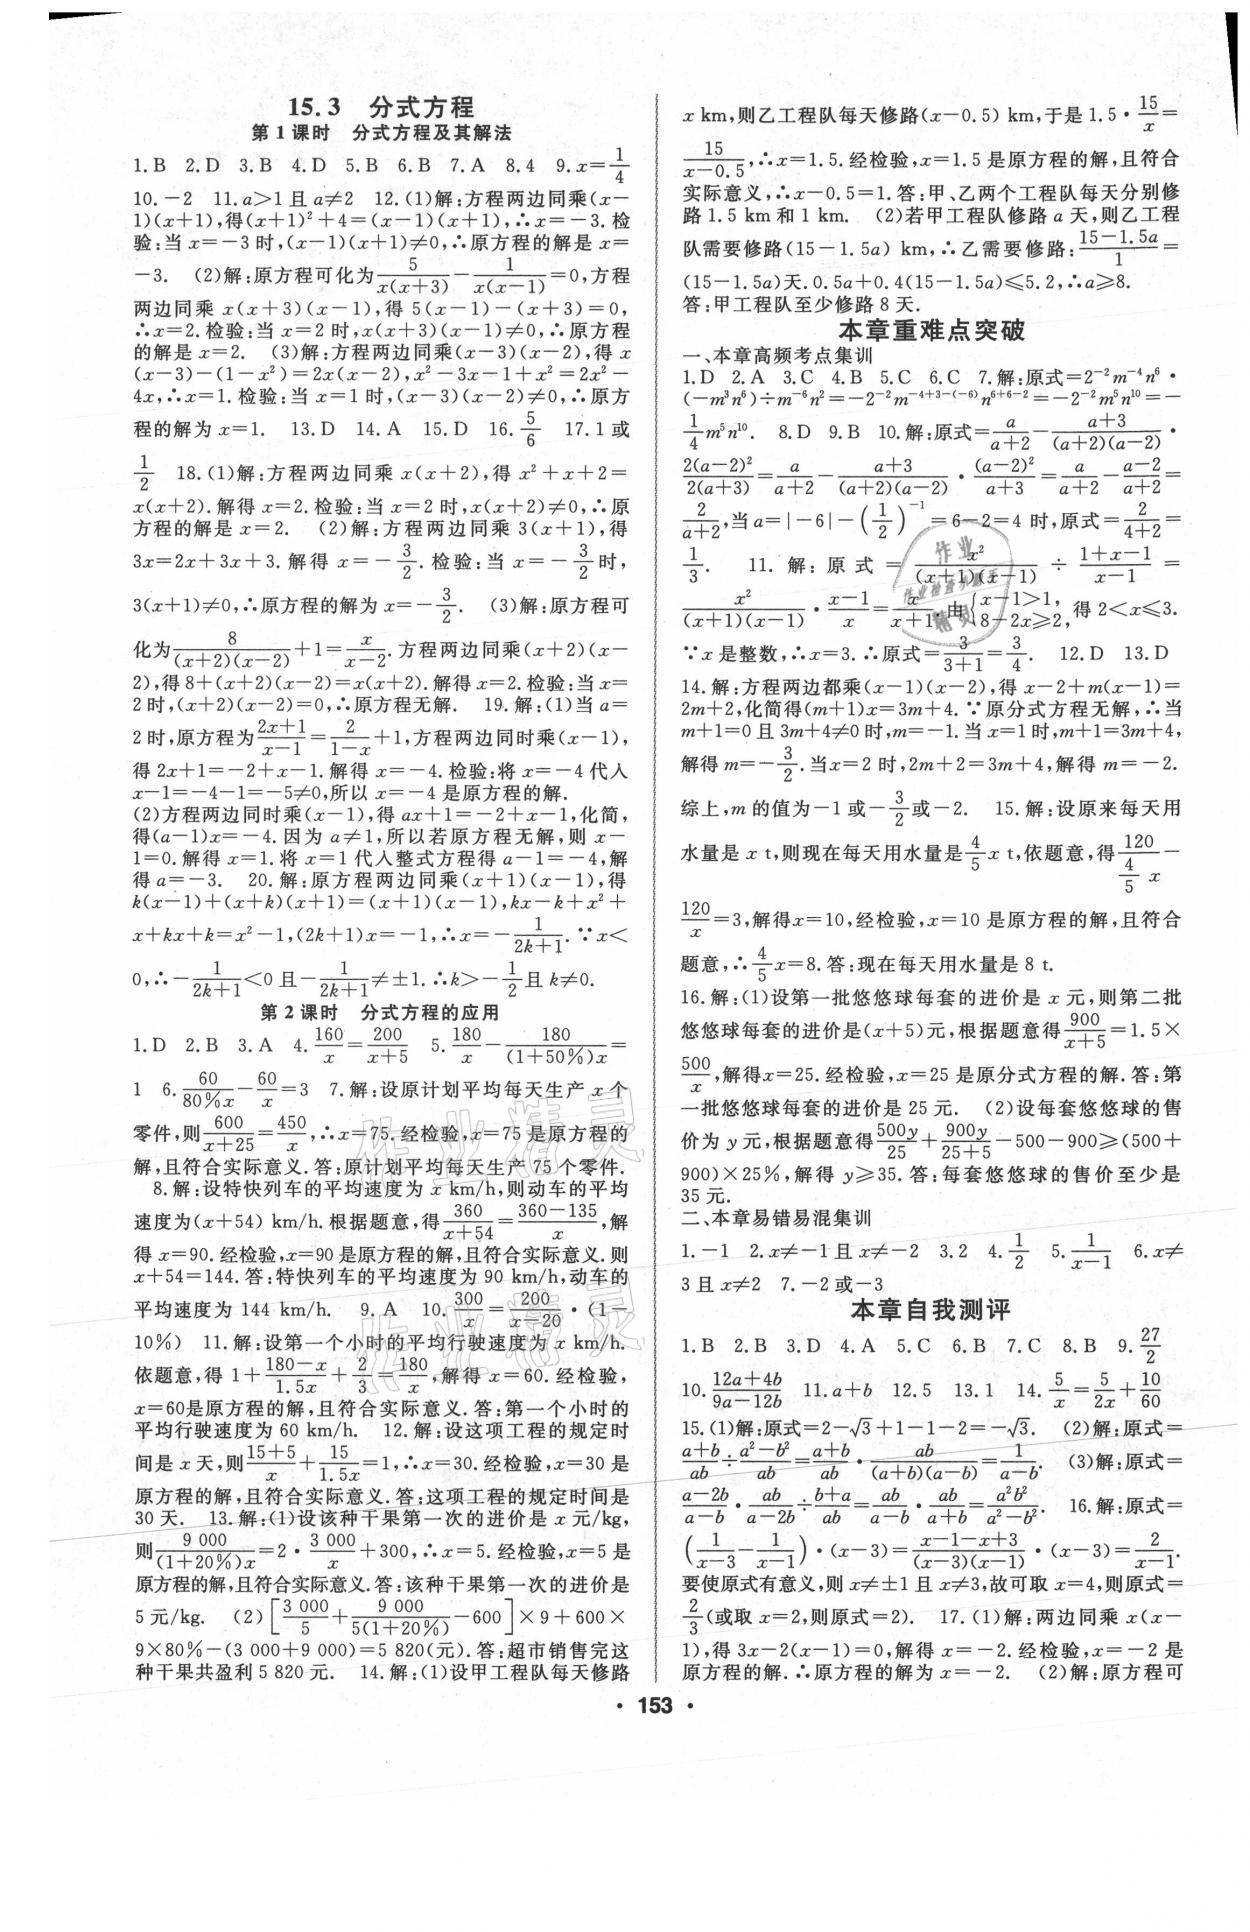 15.3 分式方程
第1课时 分式方程及其解法
1.B 2.D 3.B 4.D 5.B 6.B 7.A 8.4 9.x=1/4
10.-2 11.a>1且a≠2 12.(1)解:方程两边同乘(x-
1)(x+1),得(x+1)²+4=(x-1)(x+1),∴x=-3.检
验:当x=-3时,(x-1)(x+1)≠0,∴原方程的解是x=
-3. (2)解:原方程可化为5/x(x+3)-1/x(x-1)=0,方程
两边同乘x(x+3)(x-1),得5(x-1)-(x+3)=0,
∴x=2.检验:当x=2时,x(x+3)(x-1)≠0,∴原方程
的解是x=2. (3)解:方程两边同乘(x-3)(x-2),得x
(x-3)-(1-x²)=2x(x-2),x²-3x-1+x²=2x²-
4x,∴x=1.检验:当x=1时,(x-3)(x-2)≠0,∴原方
程的解为x=1. 13.D 14.A 15.D 16.5/6 17.1或
1/2 18.(1)解:方程两边同乘x(x+2),得x²+x+2=
x(x+2).解得x=2.检验:当x=2时,x(x+2)≠0,∴原
方程的解是x=2. (2)解:方程两边同乘3(x+1),得
3x=2x+3x+3.解得x=-3/2.检验:当x=-3/2时,
3(x+1)≠0,∴原方程的解为x=-3/2. (3)解:原方程可
化为8/(x+2)(x-2)+1=x/x-2.方程两边同乘(x+2)(x-
2),得8+(x+2)(x-2)=x(x+2).解得x=2.检验:当x=
2时,(x+2)(x-2)=0,∴原方程无解. 19.解:(1)当a=
2时,原方程为2x+1/x-1=2/1-x+1,方程两边同时乘(x-1),
得2x+1=-2+x-1.解得x=-4.检验:将x=-4代入
x-1=-4-1=-5≠0,所以x=-4是原方程的解.
(2)方程两边同时乘(x-1),得ax+1=-2+x-1,化简,
得(a-1)x=-4.因为a≠1,所以若原方程无解,则x-
1=0.解得x=1.将x=1代入整式方程得a-1=-4,解
得a=-3. 20.解:原方程两边同乘(x+1)(x-1),得
k(x-1)+(x+k)(x+1)=(x+1)(x-1),kx-k+x²+
x+kx+k=x²-1,(2k+1)x=-1,∴x=-1/2k+1.∵x<
0,∴-1/2k+1<0且-1/2k+1≠±1.∴k>-1/2且k≠0.
第2课时 分式方程的应用
1.D 2.B 3.A 4.160/x=200/x+5 5.180/x-180/(1+50%)x=
1 6.60/80%x-60/x=3 7.解:设原计划平均每天生产x个
零件,则600/x+25=450/x,∴x=75.经检验,x=75是原方程的
解,且符合实际意义.答:原计划平均每天生产75个零件.
8.解:设特快列车的平均速度为x km/h,则动车的平均
速度为(x+54) km/h.根据题意,得360/x+54=360-135/x,解
得x=90.经检验,x=90是原方程的解,且符合实际意义.则
x+54=144.答:特快列车的平均速度为90 km/h,动车的
平均速度为144 km/h. 9.A 10.300/x=200/x-20·(1-
10%) 11.解:设第一个小时的平均行驶速度为x km/h.
依题意,得1+180-x/1.5x+2/3=180/x,解得x=60.经检验,
x=60是原方程的解,且符合实际意义.答:第一个小时的
平均行驶速度为60 km/h. 12.解:设这项工程的规定时
间是x天,则15+5/x+15/1.5x=1,∴x=30.经检验,x=30是
原方程的解,且符合实际意义.答:这项工程的规定时间是
30天. 13.解:(1)设该种干果第一次的进价是x元/kg,
则9 000/(1+20%)x=2·3 000/x+300,∴x=5.经检验,x=5是
原方程的解,且符合实际意义.答:该种干果第一次的进价是
5元/kg. (2)[3 000/5+9 000/5(1+20%)-600]×9+600×
9×80%-(3 000+9 000)=5 820(元).答:超市销售完这
种干果共盈利5 820元. 14.解:(1)设甲工程队每天修路
x km,则乙工程队每天修路(x-0.5) km,于是1.5·15/x=
15/x-0.5,∴x=1.5.经检验,x=1.5是原方程的解,且符合
实际意义,∴x-0.5=1.答:甲、乙两个工程队每天分别修
路1.5 km和1 km. (2)若甲工程队修路a天,则乙工程
队需要修路(15-1.5a) km,∴乙需要修路:15-1.5a/1=
(15-1.5a)天.0.5a+0.4(15-1.5a)≤5.2,∴a≥8.
答:甲工程队至少修路8天.
本章重难点突破
一、本章高频考点集训
1.D 2.A 3.C 4.B 5.C 6.C 7.解:原式=2⁻²m⁻⁴n⁶·
(-m³n⁶)÷m⁻⁶n²=-2⁻²m⁻⁴⁺³⁻⁽⁻⁶⁾n⁶⁺⁶⁻²=-2⁻²m⁵n¹⁰=-
1/4m⁵n¹⁰. 8.D 9.B 10.解:原式=a/a+2-a+3/(a+2)(a-2)·
2(a-2)²/2(a+3)=a/a+2-a+3/(a+2)(a-2)·(a-2)²/a+3=a/a+2-a-2/a+2=
2/a+2,当a=|-6|-(1/2)⁻¹=6-2=4时,原式=2/4+2=
1/3. 11.解:原式=x²/(x+1)(x-1)÷1+x-1/x-1=
x²/(x+1)(x-1)·x-1/x=x/x+1.由{x-1>1,8-2x≥2,得2<x≤3.
∵x是整数,∴x=3.∴原式=3/3+1=3/4. 12.D 13.D
14.解:方程两边都乘(x-1)(x-2),得x-2+m(x-1)=
2m+2,化简得(m+1)x=3m+4.∵原分式方程无解,∴当
m+1=0且3m+4≠0时,m=-1.当x=1时,m+1=3m+4,
解得m=-3/2.当x=2时,2m+2=3m+4,解得m=-2.
综上,m的值为-1或-3/2或-2. 15.解:设原来每天用
水量是x t,则现在每天用水量是4/5x t,依题意,得120/(4/5)x-
120/x=3,解得x=10,经检验,x=10是原方程的解,且符合
题意,∴4/5x=8.答:现在每天用水量是8 t.
16.解:(1)设第一批悠悠球每套的进价是x元,则第二批
悠悠球每套的进价是(x+5)元,根据题意得900/x+5=1.5×
500/x,解得x=25.经检验,x=25是原分式方程的解.答:第
一批悠悠球每套的进价是25元. (2)设每套悠悠球的售
价为y元,根据题意得500y/25+900y/25+5-500-900≥(500+
900)×25%,解得y≥35.答:每套悠悠球的售价至少是
35元.
二、本章易错易混集训
1.-1 2.x≠-1且x≠-2 3.2 4.1/2 5.1/x-1 6.x≠
3且x≠2 7.-2或-3
本章自我测评
1.B 2.B 3.D 4.A 5.C 6.B 7.C 8.B 9.27/2
10.12a+4b/9a-12b 11.a+b 12.5 13.1 14.5/x=5/2x+10/60
15.(1)解:原式=2-√3+1-1-2=-√3. (2)解:原式=
a+b/ab÷a²-b²/ab=a+b/ab·ab/(a+b)(a-b)=1/a-b. (3)解:原式=
a-2b/a-b·ab/a-2b÷b+a/ab=ab/a-b·ab/a+b=a²b²/a²-b². 16.解:原式=
(1/x-3-1/x-1)·(x-3)=x-1-x+3/(x-3)(x-1)·(x-3)=2/x-1.
要使原式有意义,则x≠±1且x≠3,故可取x=4,则原式=
2/3(或取x=2,则原式=2). 17.(1)解:两边同乘x(x-
1),得3x-2(x-1)=0,解得x=-2.经检验,x=-2是
原方程的解.∴原方程的解为x=-2. (2)解:原方程可
• 153 •
作业精灵
作业精灵
作业
作业检查小助手
精灵